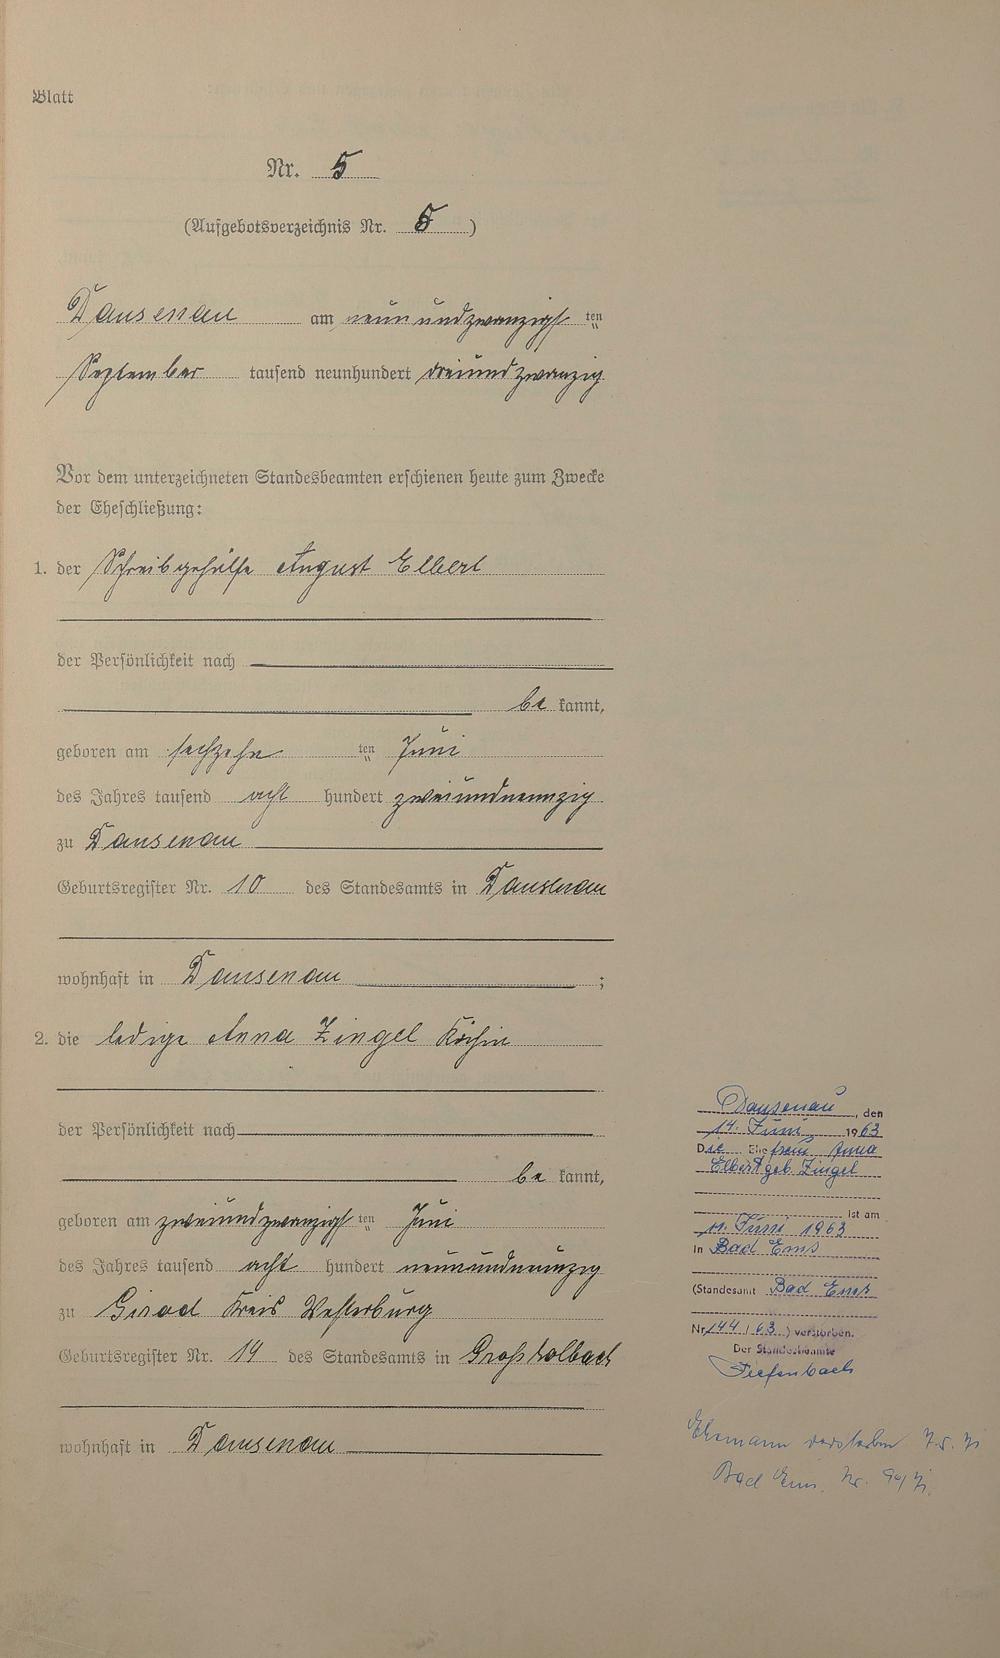 Blatt
Nr. 5
(Aufgebotsverzeichnis Nr. 5 )
Dausenau am neunundzwanzigsten
September tausend neunhundert dreiundzwanzig
Vor dem unterzeichneten Standesbeamten erschienen heute zum Zwecke
der Eheschließung:
1. der Schreibgehülfe August Elbert
der Persönlichkeit nach
be kannt,
geboren am sechzehn ten Juni
des Jahres tausend acht hundert zweiundneunzig
zu Dausenau
Geburtsregister Nr. 10 des Standesamts in Dausenau
wohnhaft in Dausenau ;
2. die ledige Anna Zingel Köchin
der Persönlichkeit nach
be kannt,
geboren am zweiundzwanzigsten Juni
des Jahres tausend acht hundert neunundneunzig
zu Girod Kreis Westerburg
Geburtsregister Nr. 14 des Standesamts in Großholbach
wohnhaft in Dausenau
Dausenau, den
14. Juni 1963
Die Ehefrau Anna
Elbert geb. Zingel
ist am
11. Juni 1963
in Bad Ems
(Standesamt Bad Ems
Nr. 144/63) verstorben.
Der Standesbeamte
Tiefenbach
Ehemann verstorben 7.5. 71
Bad Ems. Nr. /71.